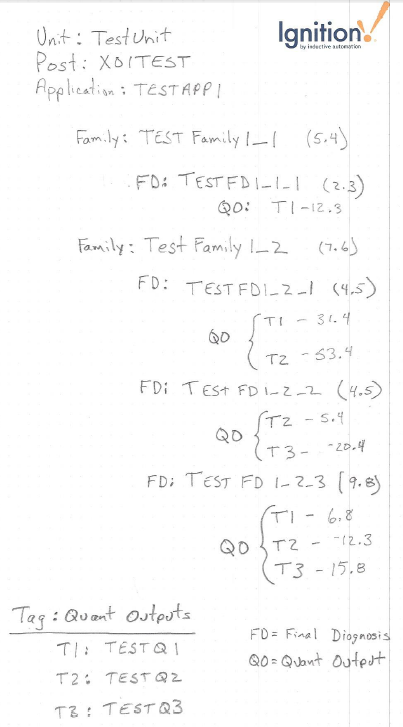 Unit: TestUnit
Ignition!
by inductive automation
Post: XO1TEST
Application: TESTAPP1
Family: TEST Family 1_1 (5.4)
FD: TESTFD1_1_1 (2.3)
QO: T1-12.3
Family: Test Family 1_2 (7.6)
FD: TESTFD1_2_1 (4.5)
QO
T1 - 31.4
T2 - 53.4
FD: TEST FD 1_2_2 (4.5)
QO
T2 - 5.4
T3 - -20.4
FD: TEST FD 1_2_3 (9.8)
QO
T1 - 6.8
T2 - -12.3
T3 - 15.8
Tag: Quant Outputs
T1: TESTQ1
T2: TESTQ2
T3: TESTQ3
FD = Final Diognosis
QO = Quant Output